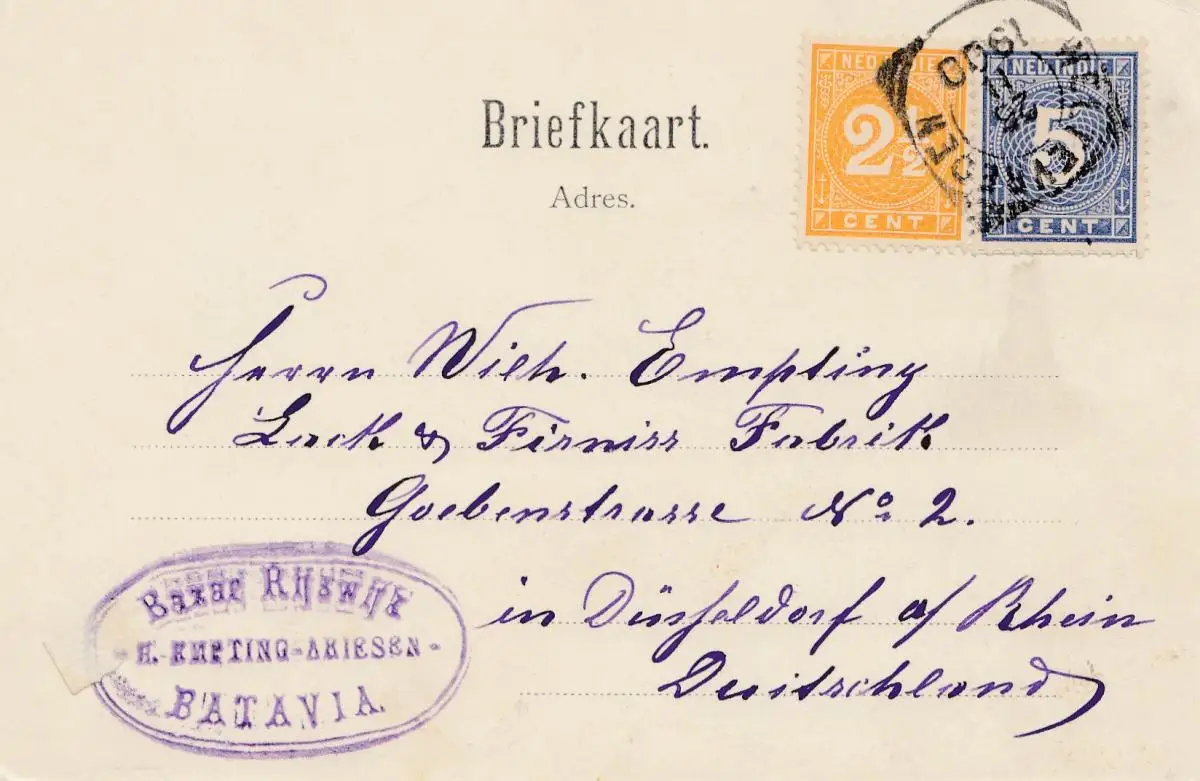 Briefkaart.
Adres.
NED. INDIE
2½
CENT
NED. INDIE
5
CENT
1900
Herrn Wilh. Empting
Lack & Firniss Fabrik
Goebenstrasse No 2.
in Düsseldorf a/ Rhein
Deutschland
Bazar Rijswijk
H. EMPTING-ARIESEN
BATAVIA.